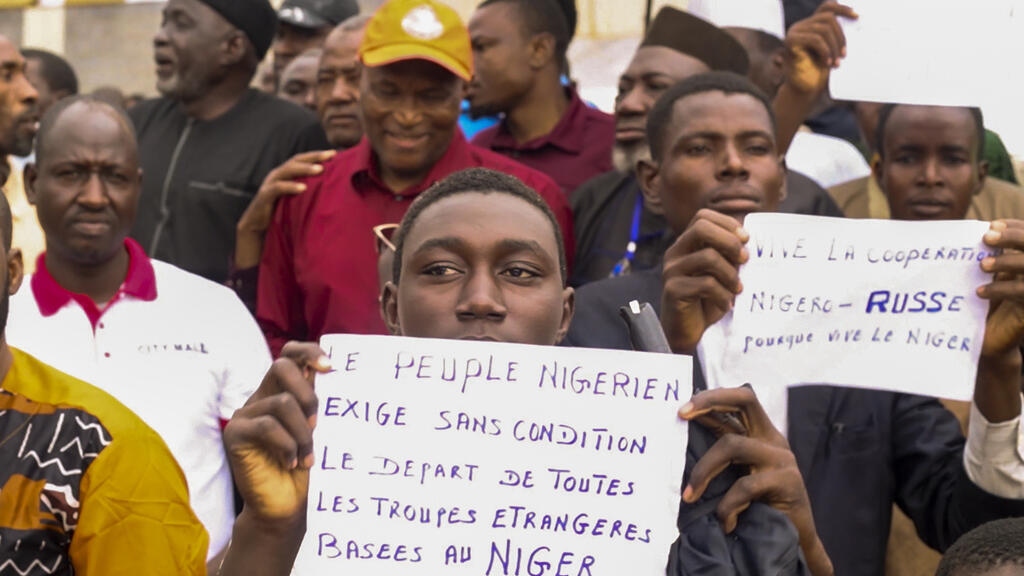 CITY MALL
LE PEUPLE NIGERIEN
EXIGE SANS CONDITION
LE DEPART DE TOUTES
LES TROUPES ETRANGERES
BASEES AU NIGER
VIVE LA COOPERATION
NIGERO-RUSSE
pourque vive LE NIGER